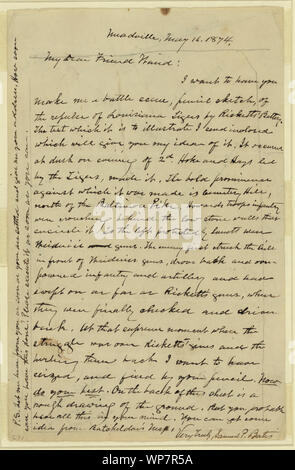 Meadville, May 16. 1874.
My Dear Friend Waud:
I want to have you
make me a battle scene, pencil sketch, of
the repulse of Louisiana Tigers by Ricketts Battery.
The text which it is to illustrate I send inclosed
which will give you my idea of it. It occurred
at dusk on evening of 2d Hoke and Hays led
by the Tigers, made it. The bold prominence
against which it was made is Cemetery Hill,
north of the Baltimore Pike. Howards troops infantry,
were crouching behind the low stone walls that
encircle it. On the left protected by lunett were
Weidrich's guns. The enemy first struck the hill
in front of Weidrichs guns, drove back and over
powered infantry and artillery and had
swept on as far as Ricketts guns, where
they were finally checked and driven
back. Now that supreme moment when the
struggle was over Ricketts guns and the
hurling them back I want to have
seized, and fixed by your pencil. Now
do your best. On the back of this sheet is a
rough drawing of the ground. But you, probably
have all this in your mind. You can get some
idea from Batchelder's Map.
Very truly, Samuel P. Bates
P.S. Let me hear from you as soon as